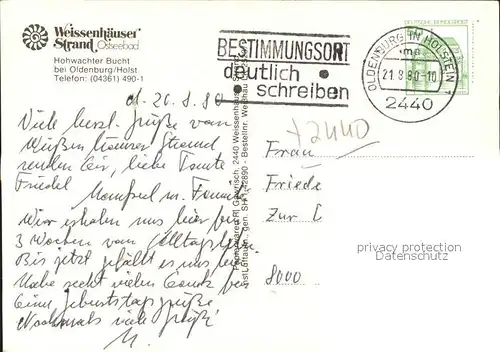 Weissenhäuser
Strand Ostseebad
Hohwachter Bucht
bei Oldenburg/Holst.
Telefon: (04361) 490-1
BESTIMMUNGSORT
deutlich
schreiben
OLDENBURG IN HOLSTEIN 1
21.8.80-10
2440
DEUTSCHE BUNDESPOST
d. 20.8.80
Viele herzl. Grüße vom
Weißenhäuser Strand
senden Dir, liebe Tante
Friedel Manfred m. Familie
Wir erholen uns hier für
3 Wochen vom Alltagsleben.
Bis jetzt gefällt es uns
Habe recht vielen Dank für
Deine Geburtstagsgrüße
Nochmals viele Grüße!
M.
2440
Frau
Friede
Zur
8000
privacy protection
Personal Data